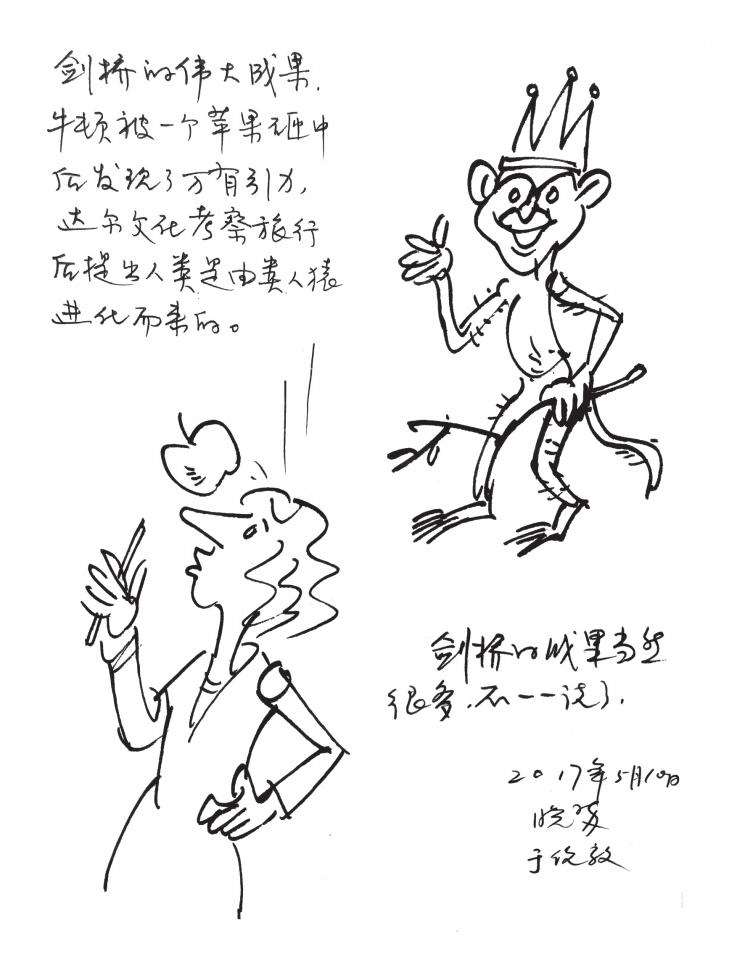 剑桥的伟大成果，
牛顿被一个苹果砸中
后发现了万有引力，
达尔文化考察旅行
后提出人类是由类人猿
进化而来的。
剑桥的成果当然
很多，不一一说了，
2017年5月10日
晓
于伦敦